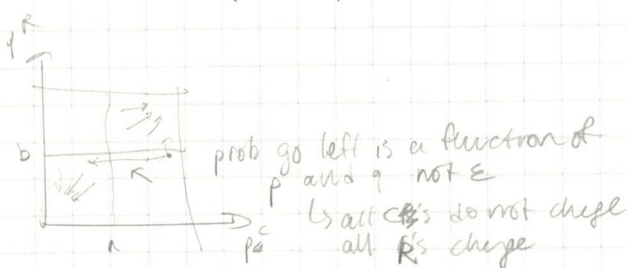 q R
b
prob go left is a function of
p and q not ε
↳ all C's do not change
all R's change
p c